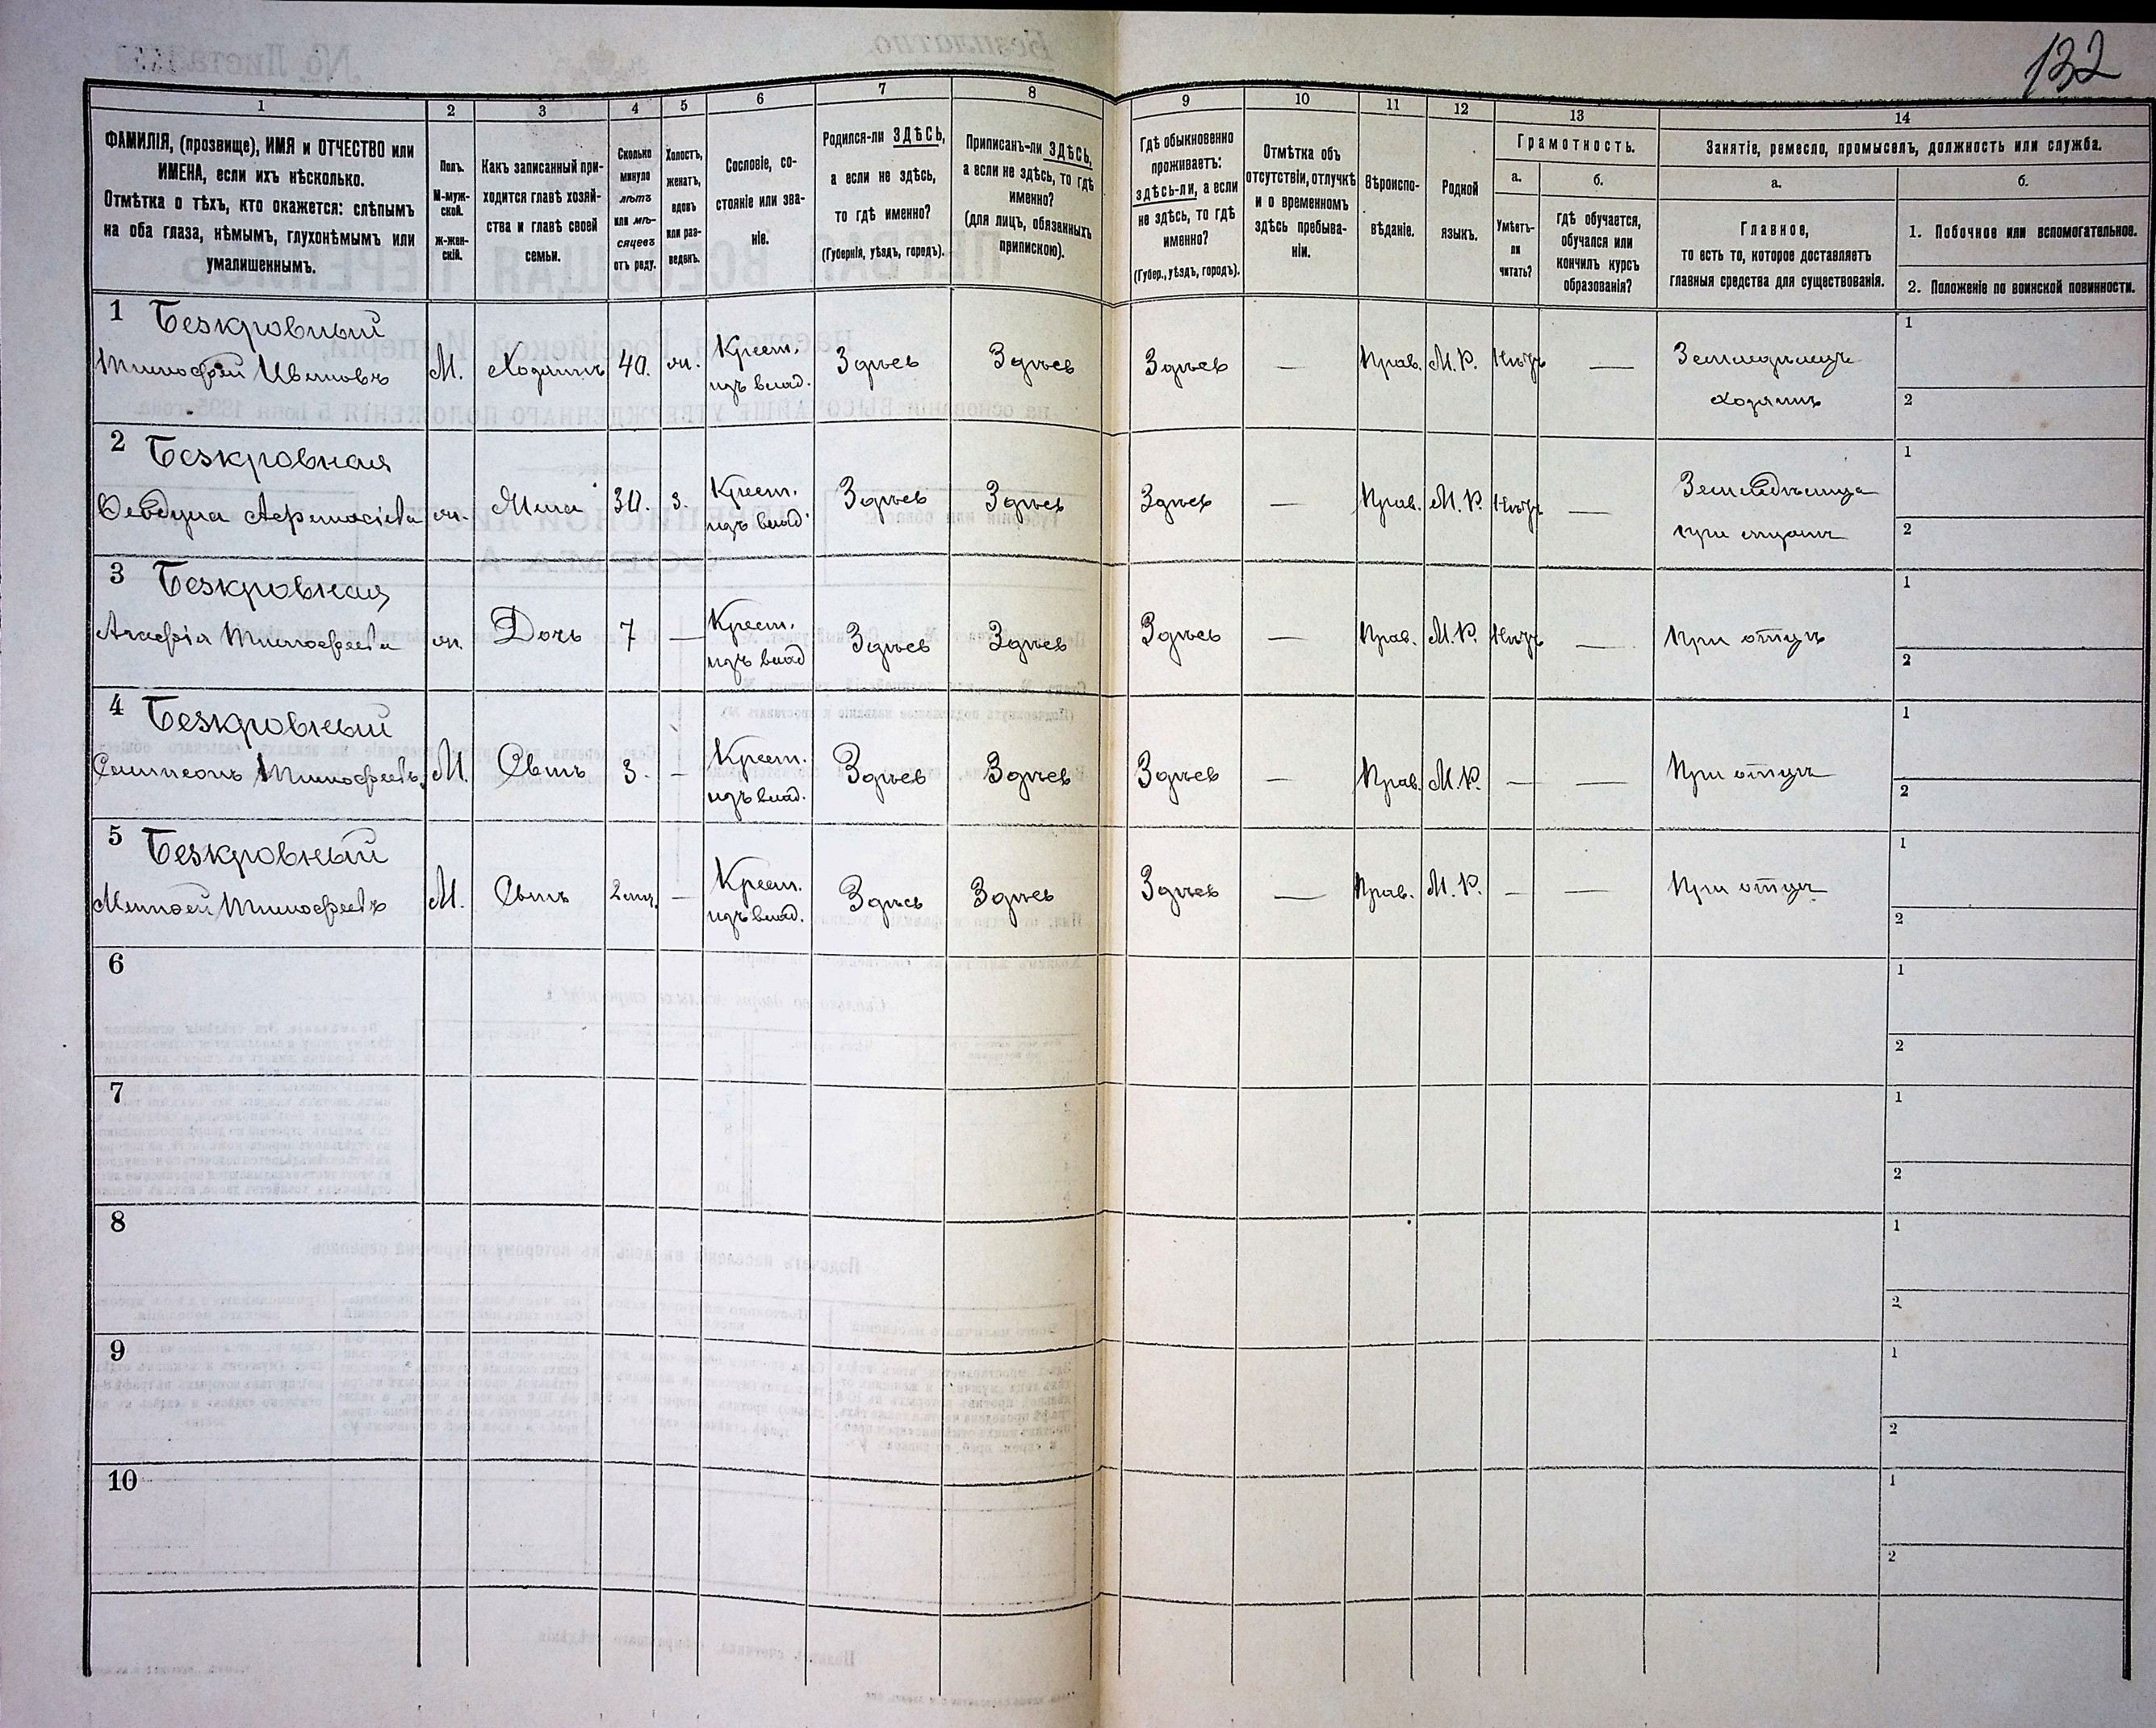 132
1
2
3
4
5
6
7
8
9
10
11
12
13
14
ФАМИЛІЯ, (прозвище), ИМЯ и ОТЧЕСТВО или
ИМЕНА, если ихъ нѣсколько.
Отмѣтка о тѣхъ, кто окажется: слѣпымъ
на оба глаза, нѣмымъ, глухонѣмымъ или
умалишеннымъ.
Полъ.
М-муж-
ской.
ж-жен-
скій.
Какъ записанный при-
ходится главѣ хозяй-
ства и главѣ своей
семьи.
Сколько
минуло
лѣтъ
или мѣ-
сяцевъ
отъ роду.
Холостъ,
женатъ,
вдовъ
или раз-
веденъ.
Сословіе, со-
стояніе или зва-
ніе.
Родился-ли ЗДѢСЬ,
а если не здѣсь,
то гдѣ именно?
(Губернія, уѣздъ, городъ).
Приписанъ-ли ЗДѢСЬ,
а если не здѣсь, то гдѣ
именно?
(для лицъ, обязанныхъ
припискою).
Гдѣ обыкновенно
проживаетъ:
здѣсь-ли, а если
не здѣсь, то гдѣ
именно?
(Губер., уѣздъ, городъ).
Отмѣтка объ
отсутствіи, отлучкѣ
и о временномъ
здѣсь пребыва-
ніи.
Вѣроиспо-
вѣданіе.
Родной
языкъ.
Грамотность.
а.
б.
Умѣетъ-
ли
читать?
гдѣ обучается,
обучался или
кончилъ курсъ
образованія?
Занятіе, ремесло, промыселъ, должность или служба.
а.
б.
Главное,
то есть то, которое доставляетъ
главныя средства для существованія.
1. Побочное или вспомогательное.
2. Положеніе по воинской повинности.
1 Безкровный
Тимофей Ивановъ М. Хозяинъ 40. ж. Крест. Здѣсь Здѣсь Здѣсь — Прав. М.Р. Нѣтъ — Земледѣлецъ 1
изъ влад. хозяинъ 2
2 Безкровная
Феодула Афанасіева ж. Жена 30. з. Крест. Здѣсь Здѣсь Здѣсь — Прав. М.Р. Нѣтъ — 1
изъ влад. при 2
3 Безкровная
Агафія Тимофеева ж. Дочь 7 — Крест. Здѣсь Здѣсь Здѣсь — Прав. М.Р. Нѣтъ — При отцѣ 1
изъ влад 2
4 Безкровный
Симпсонъ Тимофеевъ М. Сынъ 3. — Крест. Здѣсь Здѣсь Здѣсь — Прав. М.Р. — — При отцѣ 1
изъ влад. 2
5 Безкровный
Тимофеевъ М. Сынъ 2 мѣс. — Крест. Здѣсь Здѣсь Здѣсь — Прав. М.Р. — — При отцѣ 1
изъ влад. 2
6 1
2
7 1
2
8 1
2
9 1
2
10 1
2